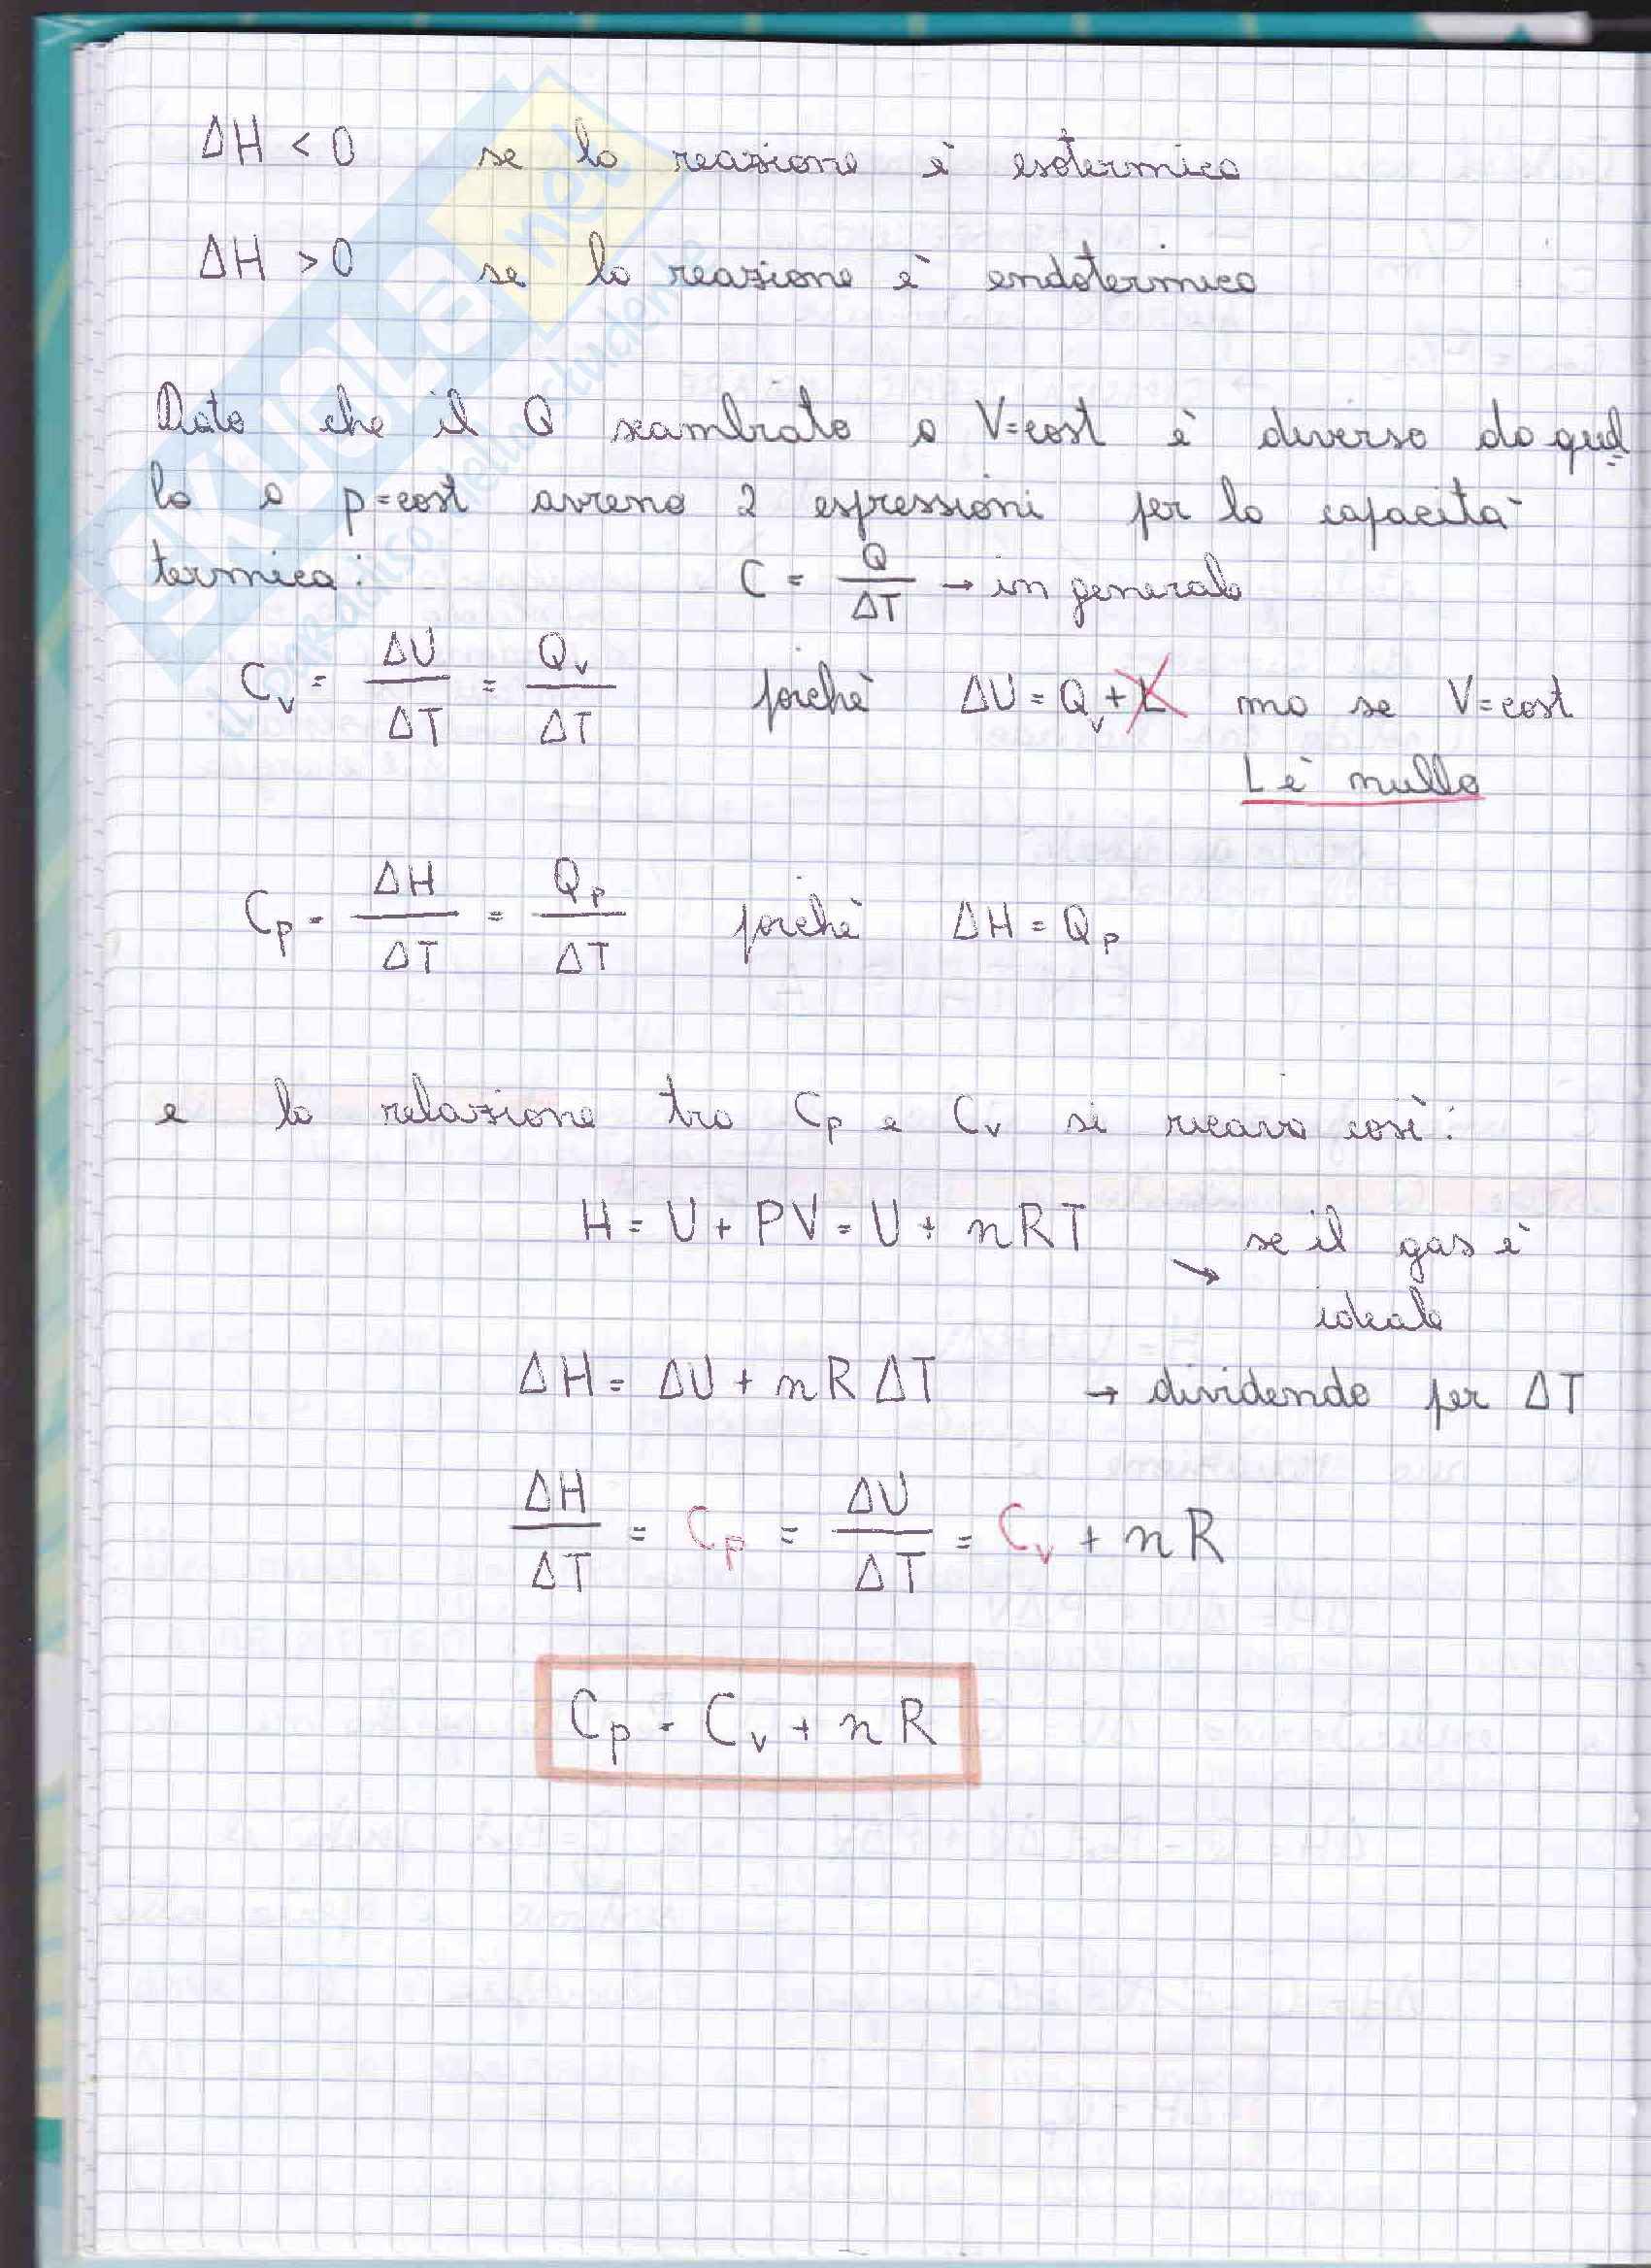 ΔH < 0 se la reazione è esotermica
ΔH > 0 se la reazione è endotermica
Dato che il Q scambiato a V=cost è diverso da quel
lo a p=cost avremo 2 espressioni per la capacità
termica: C = Q/ΔT → in generale
Cv = ΔU/ΔT = Qv/ΔT poiché ΔU = Qv + L ma se V=cost
L è nullo
Cp = ΔH/ΔT = Qp/ΔT poiché ΔH = Qp
e la relazione tra Cp e Cv si ricava così:
H = U + PV = U + nRT ↘ se il gas è
ideale
ΔH = ΔU + nRΔT → dividendo per ΔT
ΔH/ΔT = Cp = ΔU/ΔT = Cv + nR
Cp = Cv + nR
SKUOLA.net